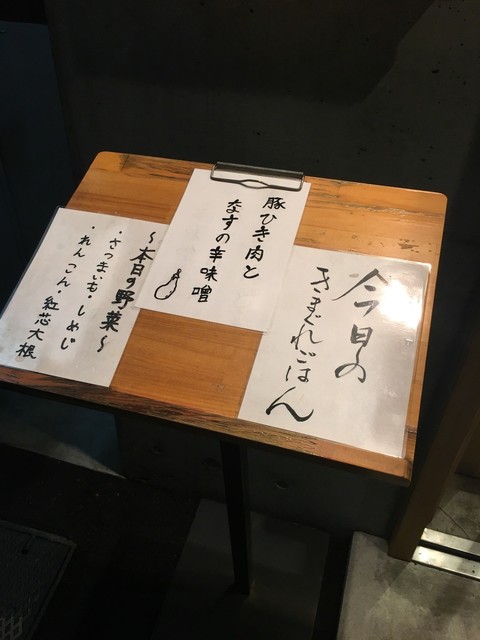 今日の
きまぐれごはん
豚ひき肉と
なすの辛味噌
〜本日の野菜〜
・さつまいも・しめじ
・れんこん・紅芯大根